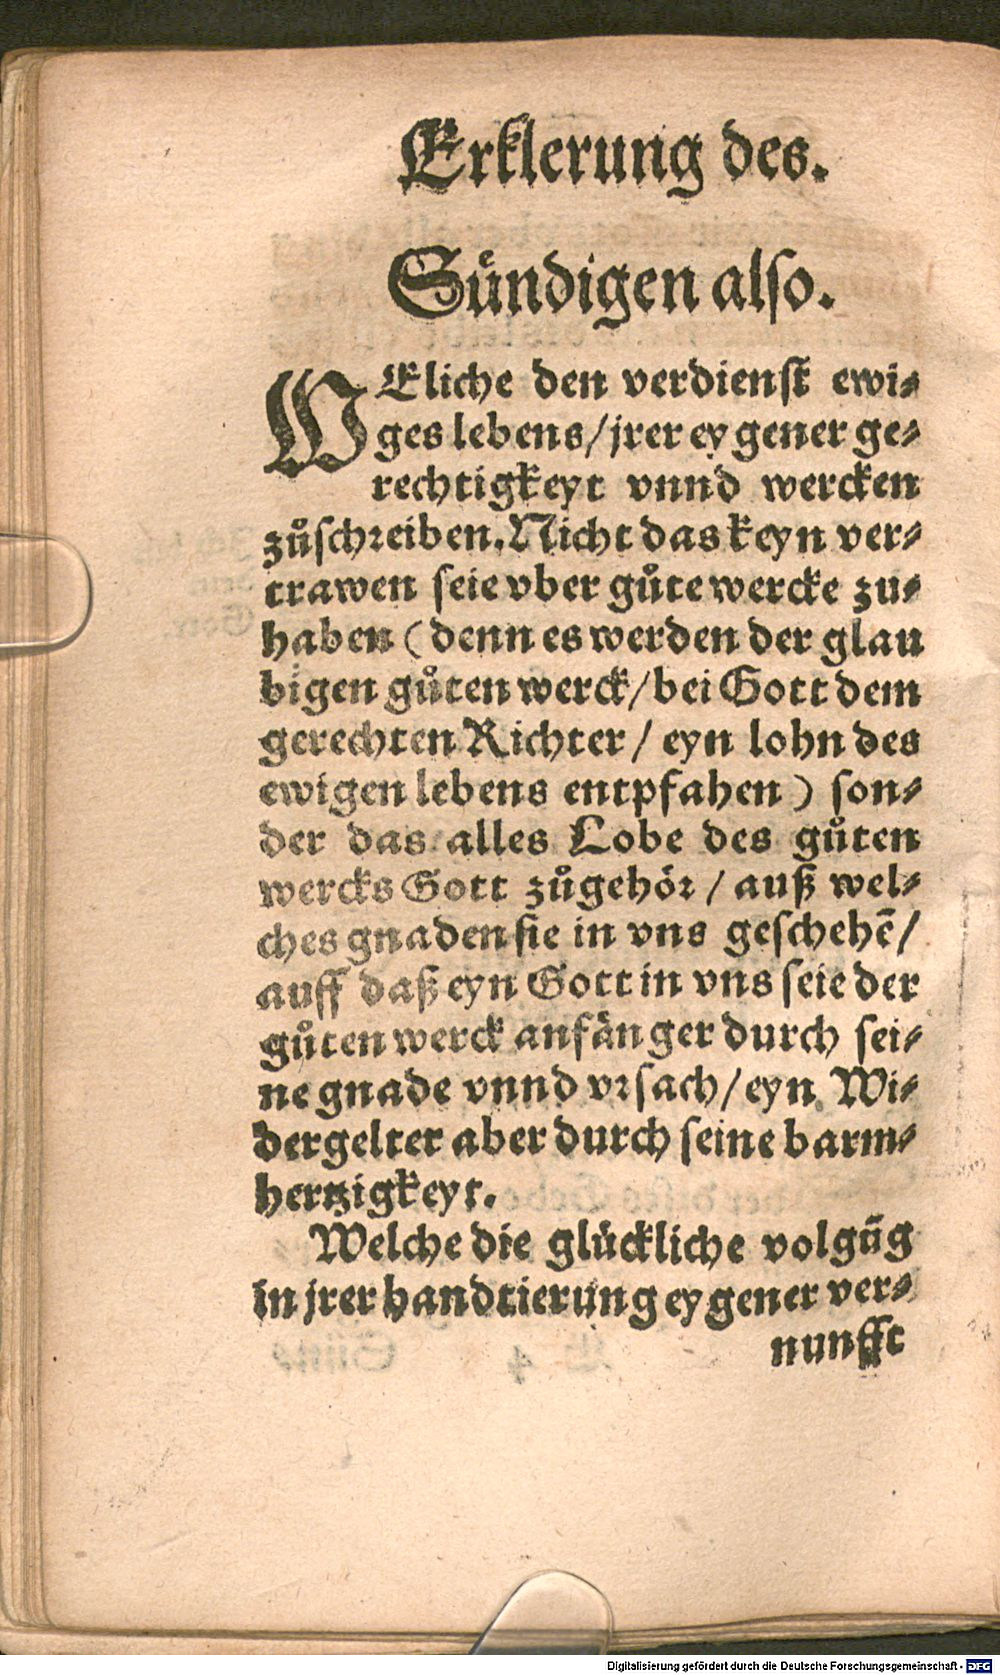 Erklerung des.
Sündigen also.
WEliche den verdienst ewi⸗
ges lebens/jrer eygener ge⸗
rechtigkeyt vnnd wercken
zůschreiben. Nicht das keyn ver⸗
trawen seie vber gůte wercke zu⸗
haben (denn es werden der glau
bigen gůten werck/bei Gott dem
gerechten Richter/ eyn lohn des
ewigen lebens entpfahen) son⸗
der das alles Lobe des gůten
wercks Gott zůgehör/ auß wel⸗
ches gnaden sie in vns geschehē/
auff daß eyn Gott in vns seie der
gůten werck anfänger durch sei⸗
ne gnade vnnd vrsach/eyn Wi⸗
dergelter aber durch seine barm⸗
hertzigkeyt.
Welche die glückliche volgũg
in jrer handtierung eygener ver⸗
nunfft
Digitalisierung gefördert durch die Deutsche Forschungsgemeinschaft - DFG